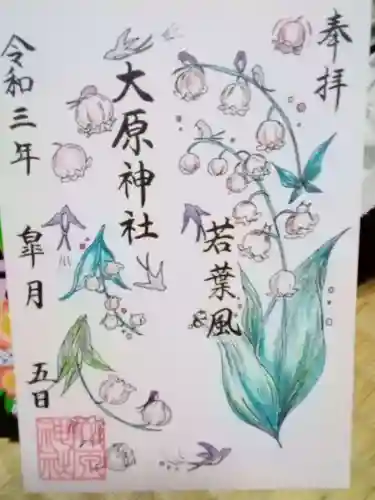 奉拝
若葉風
大原神社
令和三年 皐月 五日